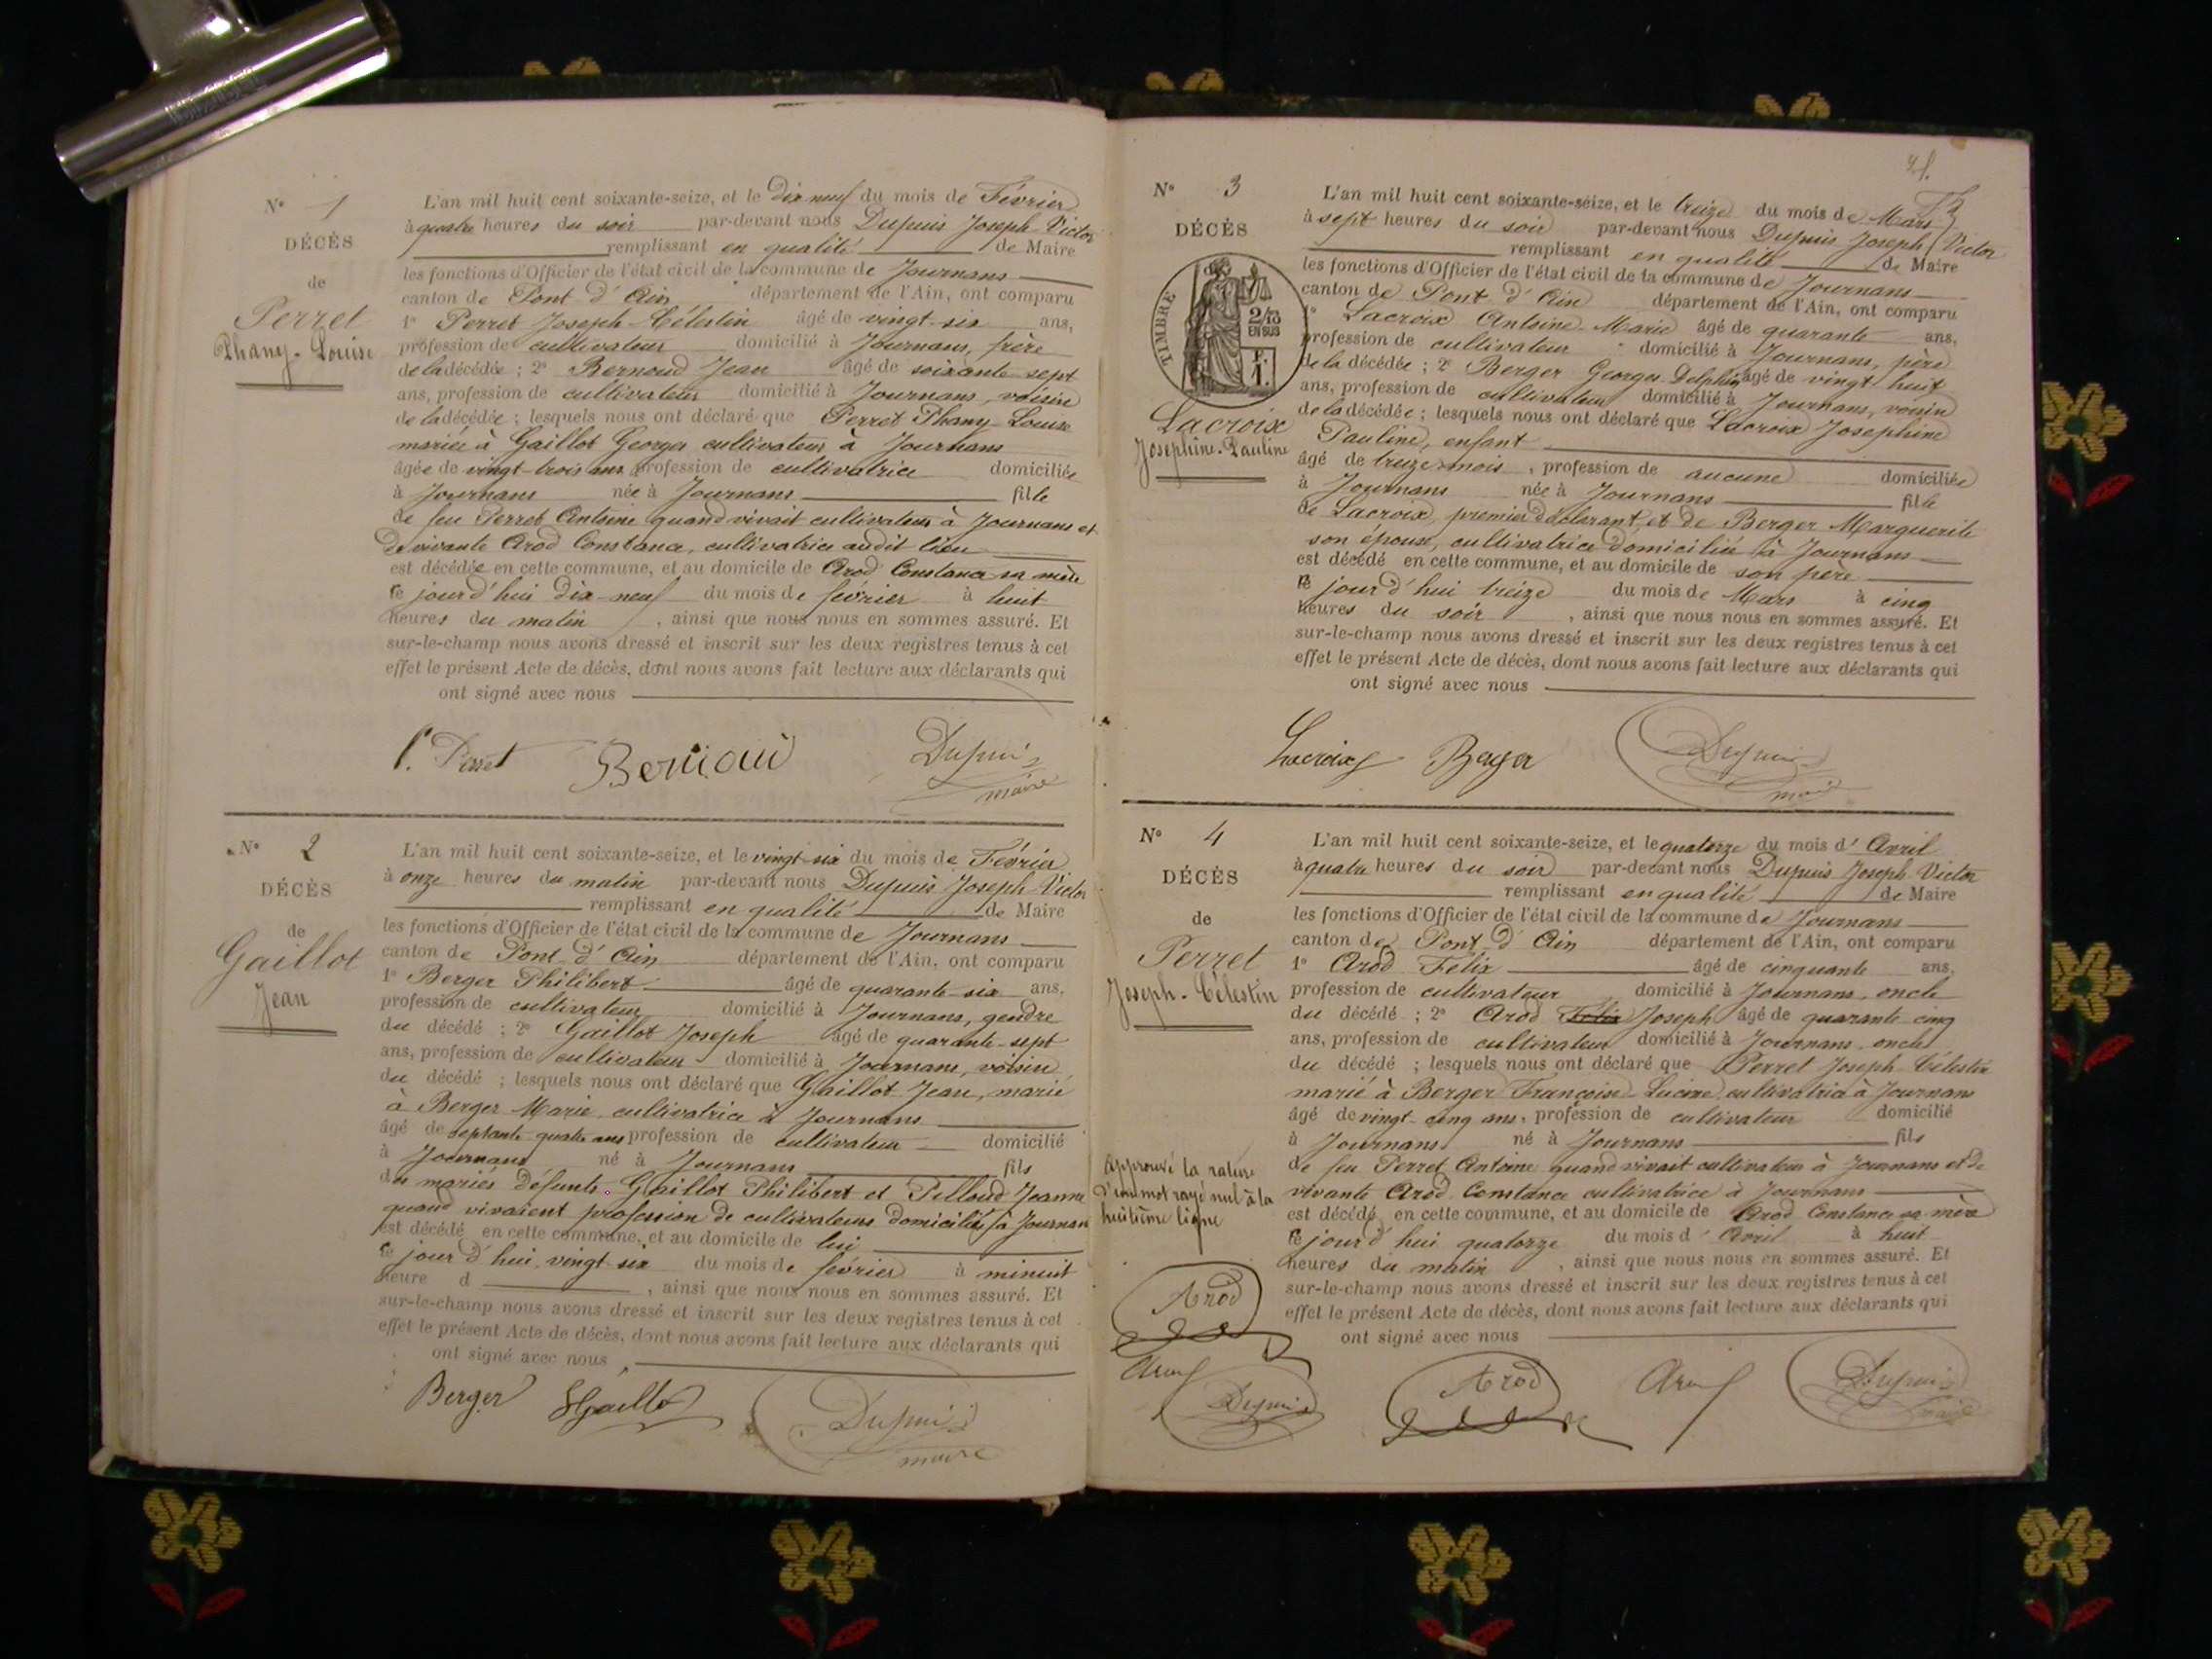 N° 1
DÉCÈS
de
Perret
Phany-Louise
L'an mil huit cent soixante-seize, et le dix neuf du mois de Février
à quatre heures du soir par-devant nous Dupuis Joseph Victor
remplissant en qualité de Maire
les fonctions d'Officier de l'état civil de la commune de Journans
canton de Pont d'Ain département de l'Ain, ont comparu
1° Perret Joseph-Célestin âgé de vingt-six ans,
profession de cultivateur domicilié à Journans, frère
de la décédée ; 2° Bernoud Jean âgé de soixante sept
ans, profession de cultivateur domicilié à Journans, voisin
de la décédée ; lesquels nous ont déclaré que Perret Phany-Louise
mariée à Gaillot Georges cultivateur à Journans
âgée de vingt-trois ans profession de cultivatrice domiciliée
à Journans née à Journans fille
de feu Perret Antoine quand vivait cultivateur à Journans et
de vivante Arod Constance, cultivatrice audit lieu
est décédée en cette commune, et au domicile de Arod Constance sa mère
ce jourd'hui dix-neuf du mois de février à huit
heures du matin , ainsi que nous nous en sommes assuré. Et
sur-le-champ nous avons dressé et inscrit sur les deux registres tenus à cet
effet le présent Acte de décès, dont nous avons fait lecture aux déclarants qui
ont signé avec nous
Perret Dupuis
maire
N° 2
DÉCÈS
de
Gaillot
Jean
L'an mil huit cent soixante-seize, et le vingt-six du mois de Février
à onze heures du matin par-devant nous Dupuis Joseph-Victor
remplissant en qualité de Maire
les fonctions d'Officier de l'état civil de la commune de Journans
canton de Pont d'Ain département de l'Ain, ont comparu
1° Berger Philibert âgé de quarante-six ans,
profession de cultivateur domicilié à Journans, gendre
du décédé ; 2° Gaillot Joseph âgé de quarante-sept
ans, profession de cultivateur domicilié à Journans, voisin
du décédé ; lesquels nous ont déclaré que Gaillot Jean, marié
à Berger Marie cultivatrice à Journans
âgé de septante quatre ans profession de cultivateur domicilié
à Journans né à Journans fils
des mariés défunts Gaillot Philibert et Pilloud Jeanne
quand vivaient profession de cultivateurs domiciliés à Journans
est décédé en cette commune, et au domicile de lui
ce jourd'hui vingt six du mois de février à minuit
heure d , ainsi que nous nous en sommes assuré. Et
sur-le-champ nous avons dressé et inscrit sur les deux registres tenus à cet
effet le présent Acte de décès, dont nous avons fait lecture aux déclarants qui
ont signé avec nous
Berger Dupuis
maire
N° 3
DÉCÈS
TIMBRE
2/10
EN SUS
Lacroix
Joséphine-Pauline
L'an mil huit cent soixante-seize, et le treize du mois de Mars
à sept heures du soir par-devant nous Dupuis Joseph Victor
remplissant en qualité de Maire
les fonctions d'Officier de l'état civil de la commune de Journans
canton de Pont d'Ain département de l'Ain, ont comparu
1° Lacroix Antoine-Marie âgé de quarante ans,
profession de cultivateur domicilié à Journans, père
de la décédée ; 2° Berger Georges Delphin âgé de vingt huit
ans, profession de cultivateur domicilié à Journans, voisin
de la décédée ; lesquels nous ont déclaré que Lacroix Josephine
Pauline, enfant
âgé de treize mois , profession de aucune domiciliée
à Journans née à Journans fille
de Lacroix, premier déclarant, et de Berger Marguerite
son épouse, cultivatrice domiciliée à Journans
est décédé en cette commune, et au domicile de son père
ce jourd'hui treize du mois de Mars à cinq
heures du soir , ainsi que nous nous en sommes assuré. Et
sur-le-champ nous avons dressé et inscrit sur les deux registres tenus à cet
effet le présent Acte de décès, dont nous avons fait lecture aux déclarants qui
ont signé avec nous
Lacroix Berger Dupuis
maire
N° 4
DÉCÈS
de
Perret
Joseph-Célestin
L'an mil huit cent soixante-seize, et le quatorze du mois d'Avril
à quatre heures du soir par-devant nous Dupuis Joseph Victor
remplissant en qualité de Maire
les fonctions d'Officier de l'état civil de la commune de Journans
canton de Pont d'Ain département de l'Ain, ont comparu
1° Arod Félix âgé de cinquante ans,
profession de cultivateur domicilié à Journans, oncle
du décédé ; 2° Arod Félix Joseph âgé de quarante-cinq
ans, profession de cultivateur domicilié à Journans oncle
du décédé ; lesquels nous ont déclaré que Perret Joseph-Célestin
marié à Berger Françoise cultivatrice à Journans
âgé de vingt-cinq ans, profession de cultivateur domicilié
à Journans né à Journans fils
de feu Perret Antoine quand vivait cultivateur à Journans et de
vivante Arod Constance cultivatrice à Journans
est décédé en cette commune, et au domicile de Arod Constance sa mère
ce jourd'hui quatorze du mois d'Avril à huit
heures du matin , ainsi que nous nous en sommes assuré. Et
sur-le-champ nous avons dressé et inscrit sur les deux registres tenus à cet
effet le présent Acte de décès, dont nous avons fait lecture aux déclarants qui
ont signé avec nous
Approuvé la rature
d'un mot rayé nul à la
huitième ligne
Arod
Dupuis
Arod Dupuis
maire